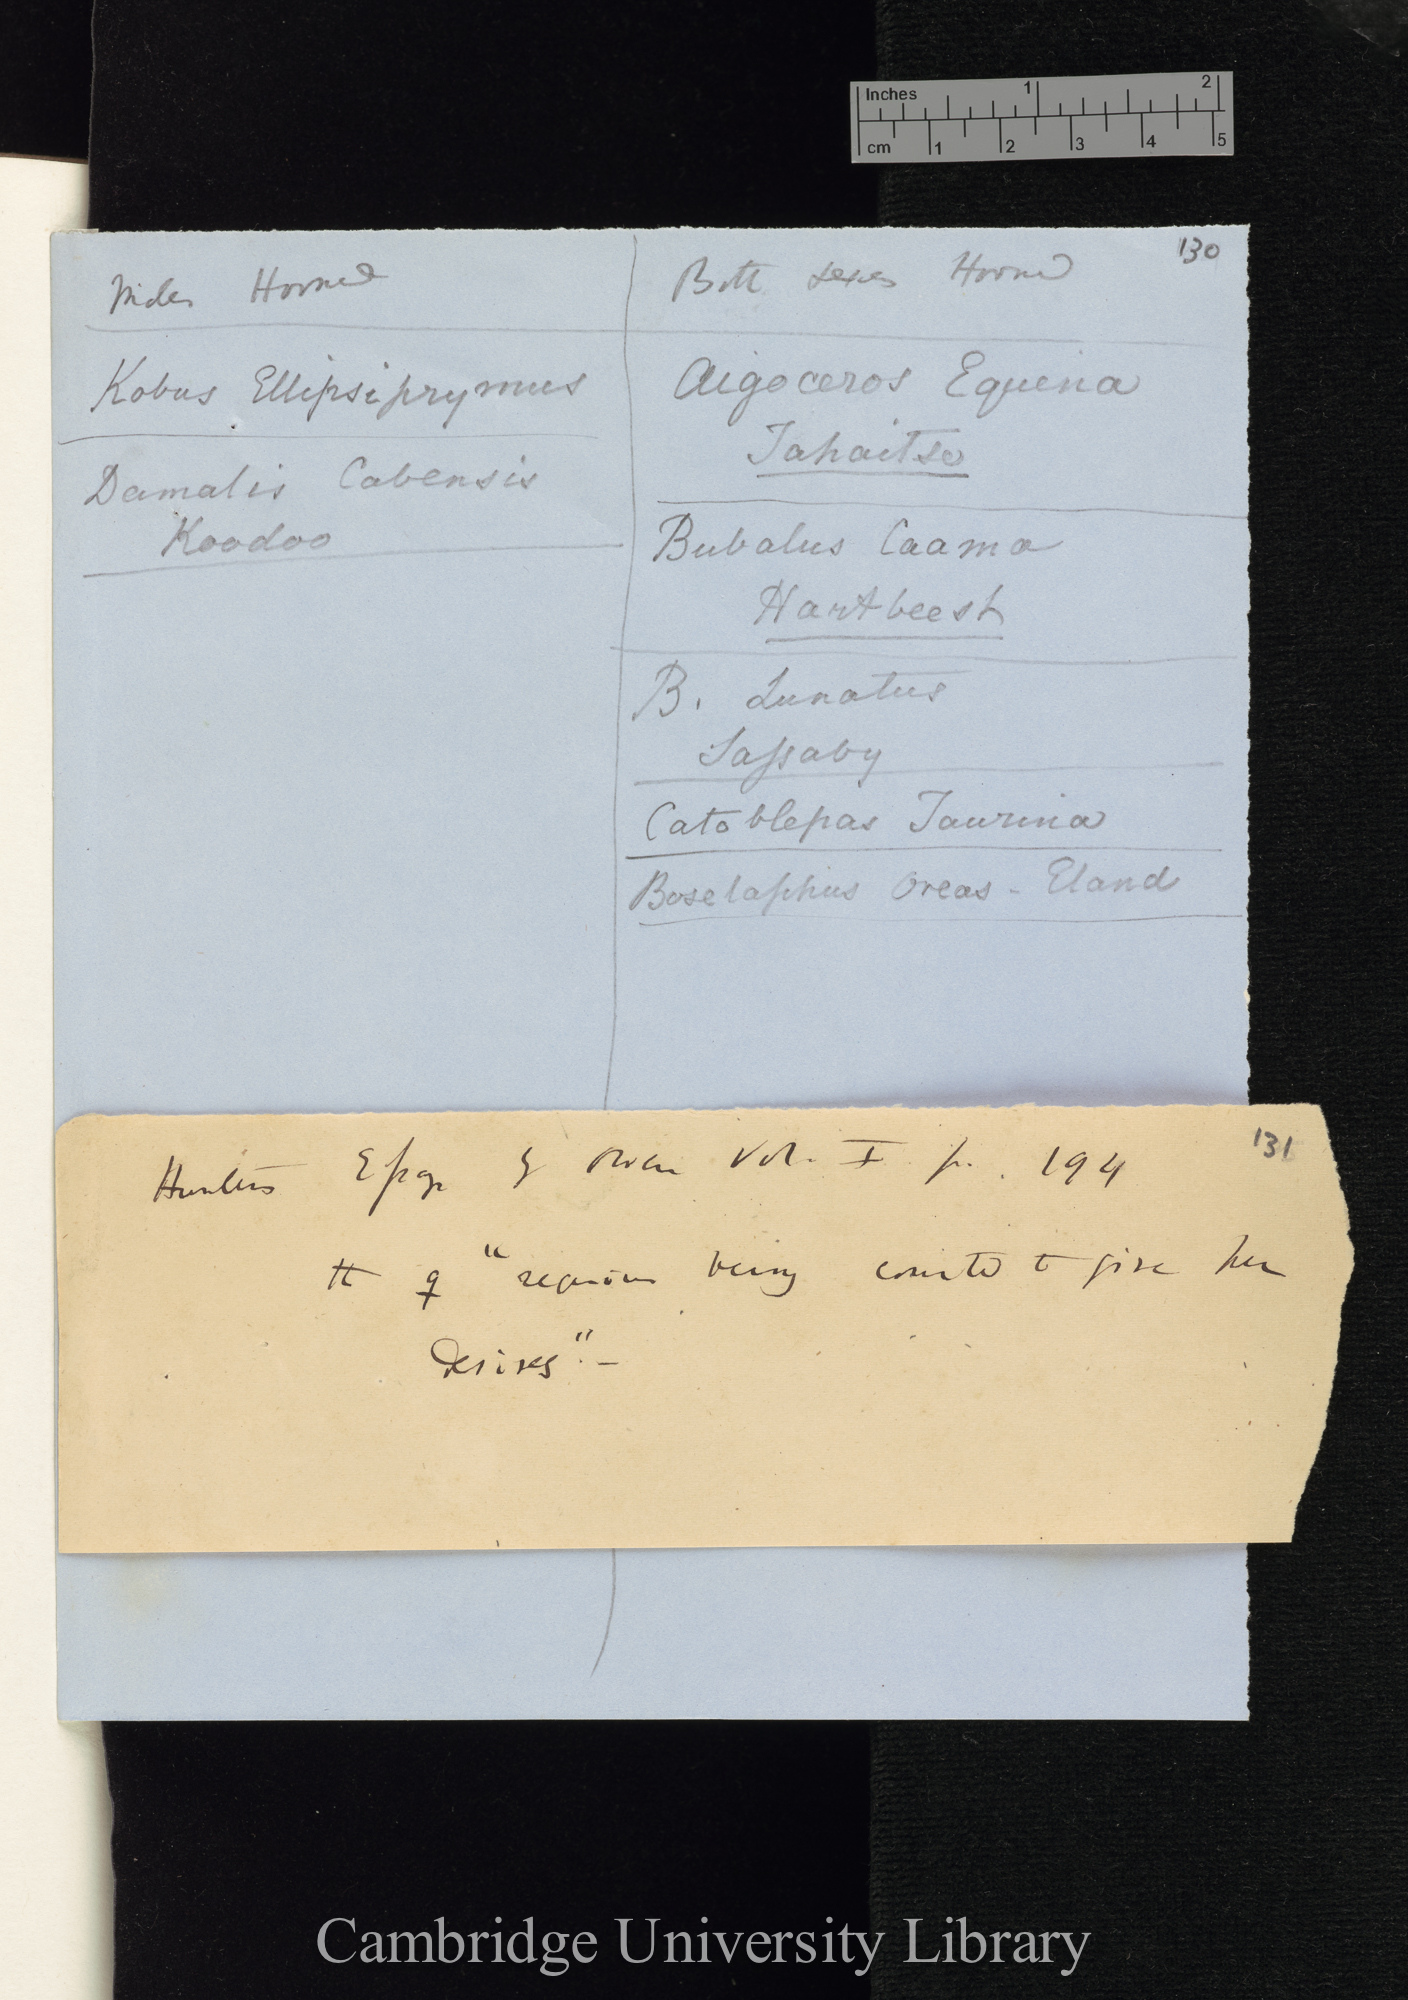 Inches 1 2
cm 1 2 3 4 5
130
Males Horned
Kobus Ellipsiprymus
Damalis Cabensis
Koodoo
Both sexes Horned
Aigoceros Equina
Tahaitse
Bubalus Caama
Hartbeesh
B. Lunatus
Sassaby
Catoblepas Taurina
Boselaphus Oreas - Eland
131
Hunter's Essays by Owen Vol. I p. 194
the ♀ "requires being courted to give her
desires".—
Cambridge University Library